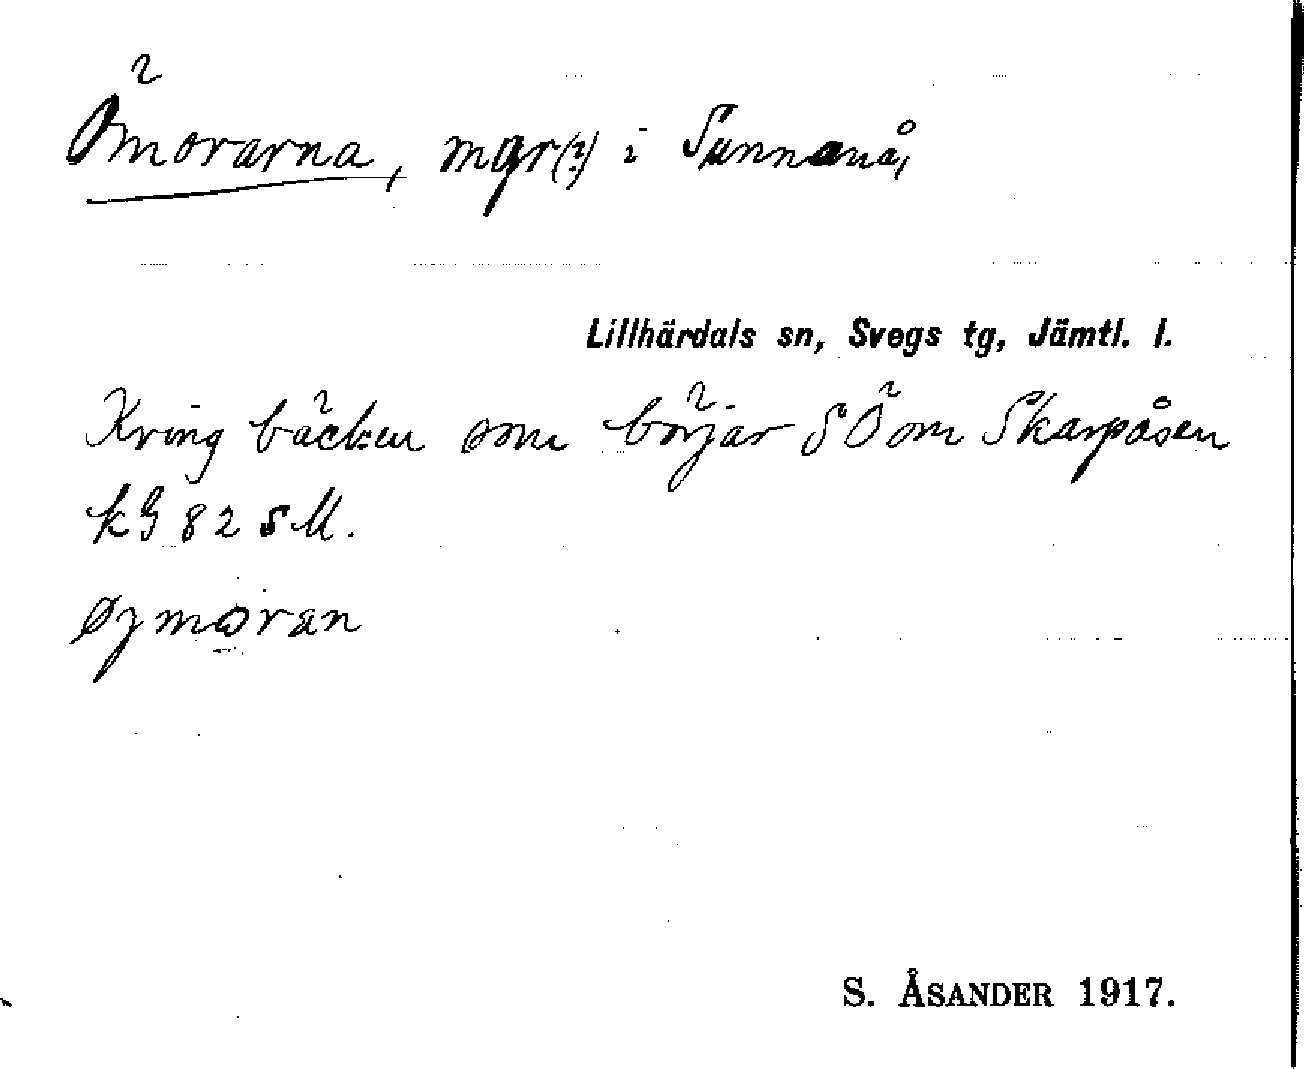 Ömorarna, mgr(?) i Sunnanå,
Lillhärdals sn, Svegs tg, Jämtl. l.
Kring bäcken som börjar SÖ om Skarpåsen
kG 82 s M.
øymoran
S. ÅSANDER 1917.